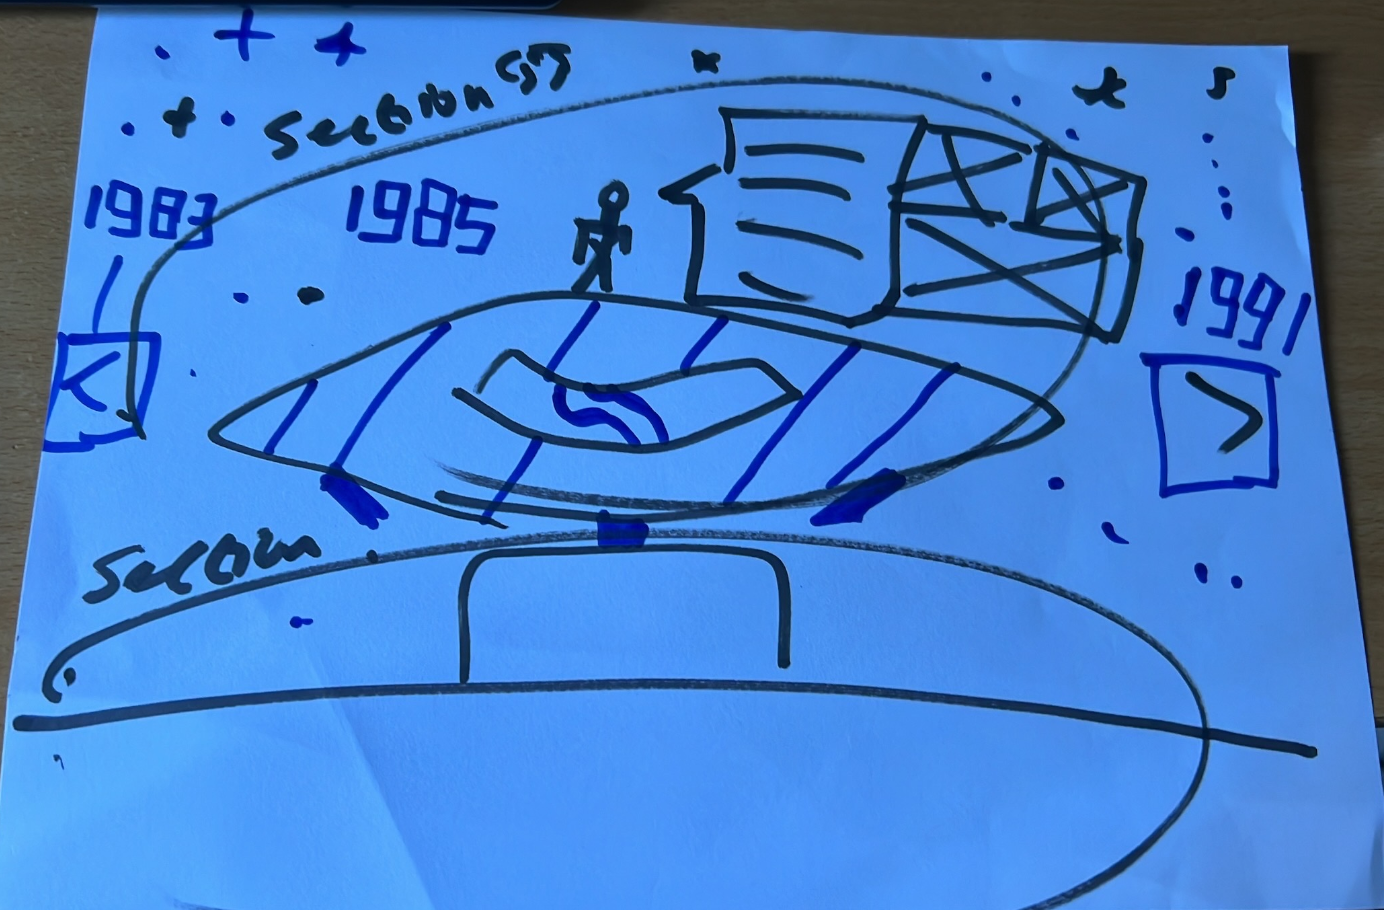 Section
1983
1985
1991
<
>
Section